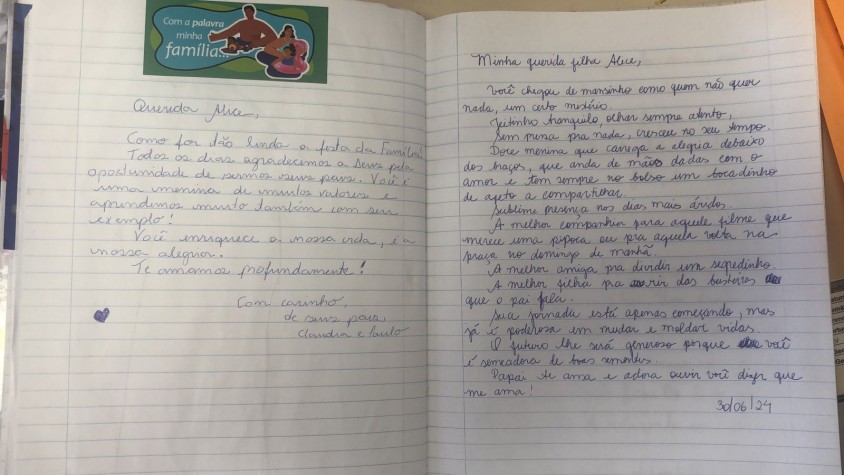 Com a palavra
minha
família...
Querida Alice,
Como foi tão linda a festa da Família!
Todos os dias agradecemos a Deus pela
oportunidade de sermos seus pais. Você é
uma menina de muitos valores e
aprendemos muito também com seu
exemplo!
Você enriquece a nossa vida, é a
nossa alegria.
Te amamos profundamente!
Com carinho,
de seus pais,
Claudia e Paulo
Minha querida filha Alice,
Você chegou de mansinho como quem não quer
nada, um certo mistério.
Jeitinho tranquilo, olhar sempre atento,
Sem pressa pra nada, cresceu no seu tempo.
Doce menina que carrega a alegria debaixo
dos braços, que anda de mãos dadas com o
amor e tem sempre no bolso um bocadinho
de afeto a compartilhar.
Sublime presença nos dias mais áridos.
A melhor companhia para aquele filme que
merece uma pipoca ou pra aquela volta na
praça no domingo de manhã.
A melhor amiga pra dividir um segredinho.
A melhor filha pra rir das besteiras
que o pai fala.
Sua jornada está apenas começando, mas
já é poderosa em mudar e moldar vidas.
O futuro lhe será generoso porque você
é semeadora de boas sementes.
Papai te ama e adora ouvir você dizer que
me ama!
30/06/24